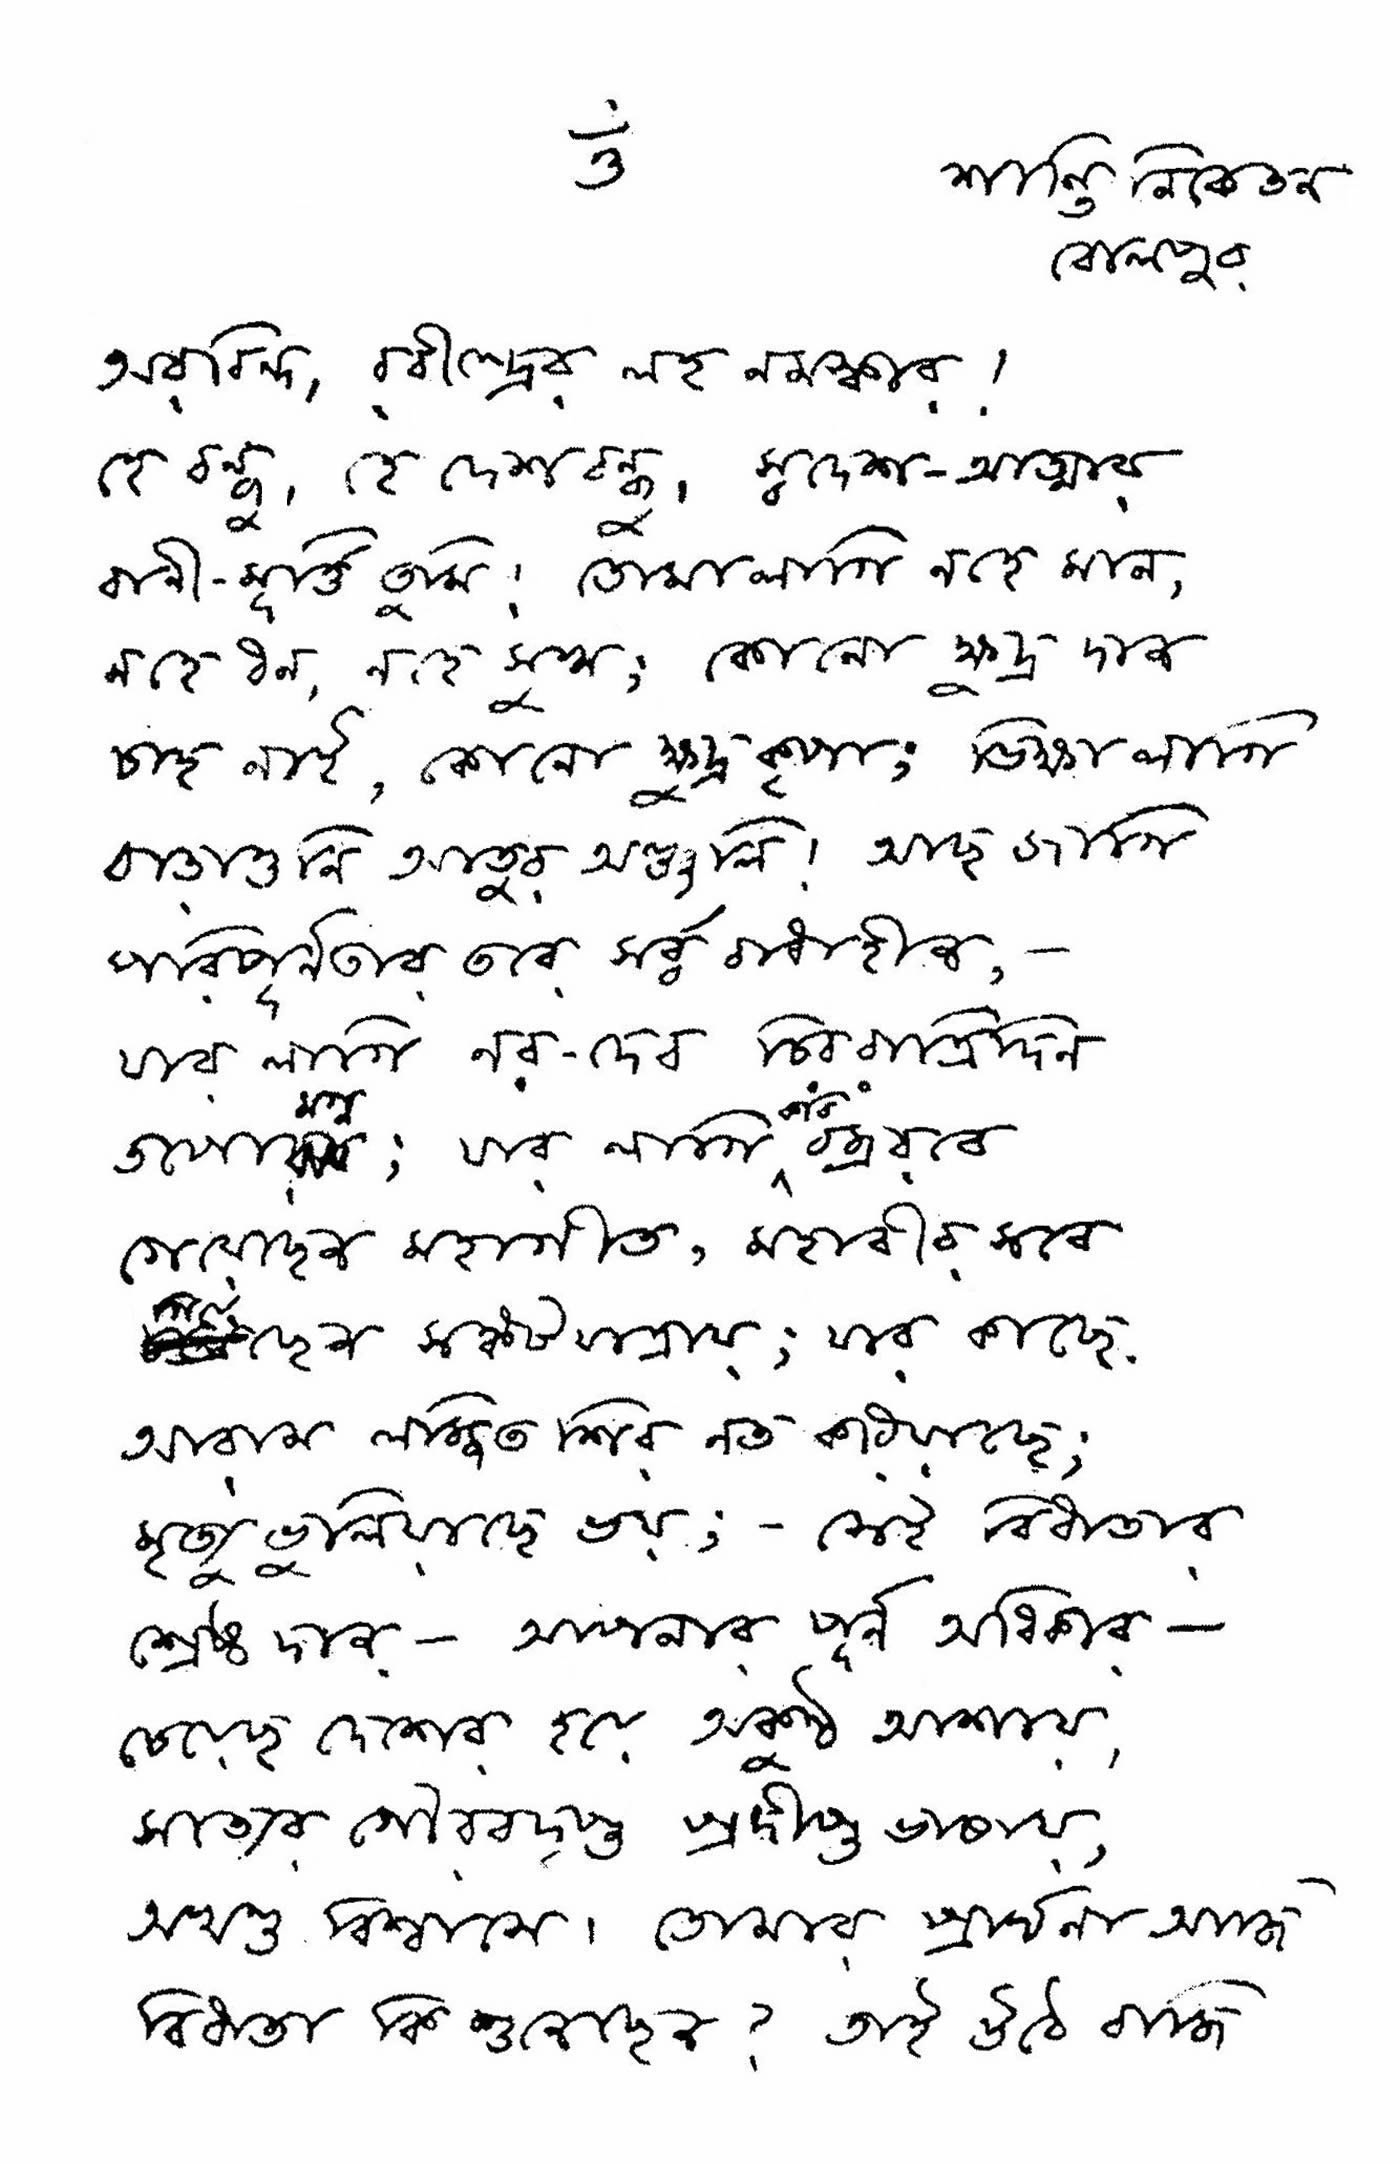 ওঁ
শান্তি নিকেতন
বোলপুর
অরবিন্দ, রবীন্দ্রের লহ নমস্কার!
হে বন্ধু, হে দেশবন্ধু, স্বদেশ-আত্মার
বাণী-মূর্ত্তি তুমি! তোমা লাগি নহে মান,
নহে ধন, নহে সুখ; কোনো ক্ষুদ্র দান
চাহ নাই, কোনো ক্ষুদ্র কৃপা; ভিক্ষা লাগি
বাড়াওনি আতুর অঞ্জলি! আছ জাগি
পরিপূর্ণতার তরে সর্ব্ববাধাহীন,—
যার লাগি নর-দেব চিররাত্রিদিন
তপোমগ্ন; যার লাগি কবি বজ্ররবে
গেয়েছেন মহাগীত, মহাবীর সবে
গিয়াছেন সঙ্কটযাত্রায়; যার কাছে
আরাম লজ্জিত শির নত করিয়াছে;
মৃত্যু ভুলিয়াছে ভয়;- সেই বিধাতার
শ্রেষ্ঠ দান— আপনার পূর্ণ অধিকার—
চেয়েছ দেশের হয়ে অকুণ্ঠ আশায়,
সত্যের গৌরবদৃপ্ত প্রদীপ্ত ভাষায়,
অখণ্ড বিশ্বাসে। তোমার প্রার্থনা আজি
বিধাতা কি শুনেছেন? তাই উঠে বাজি